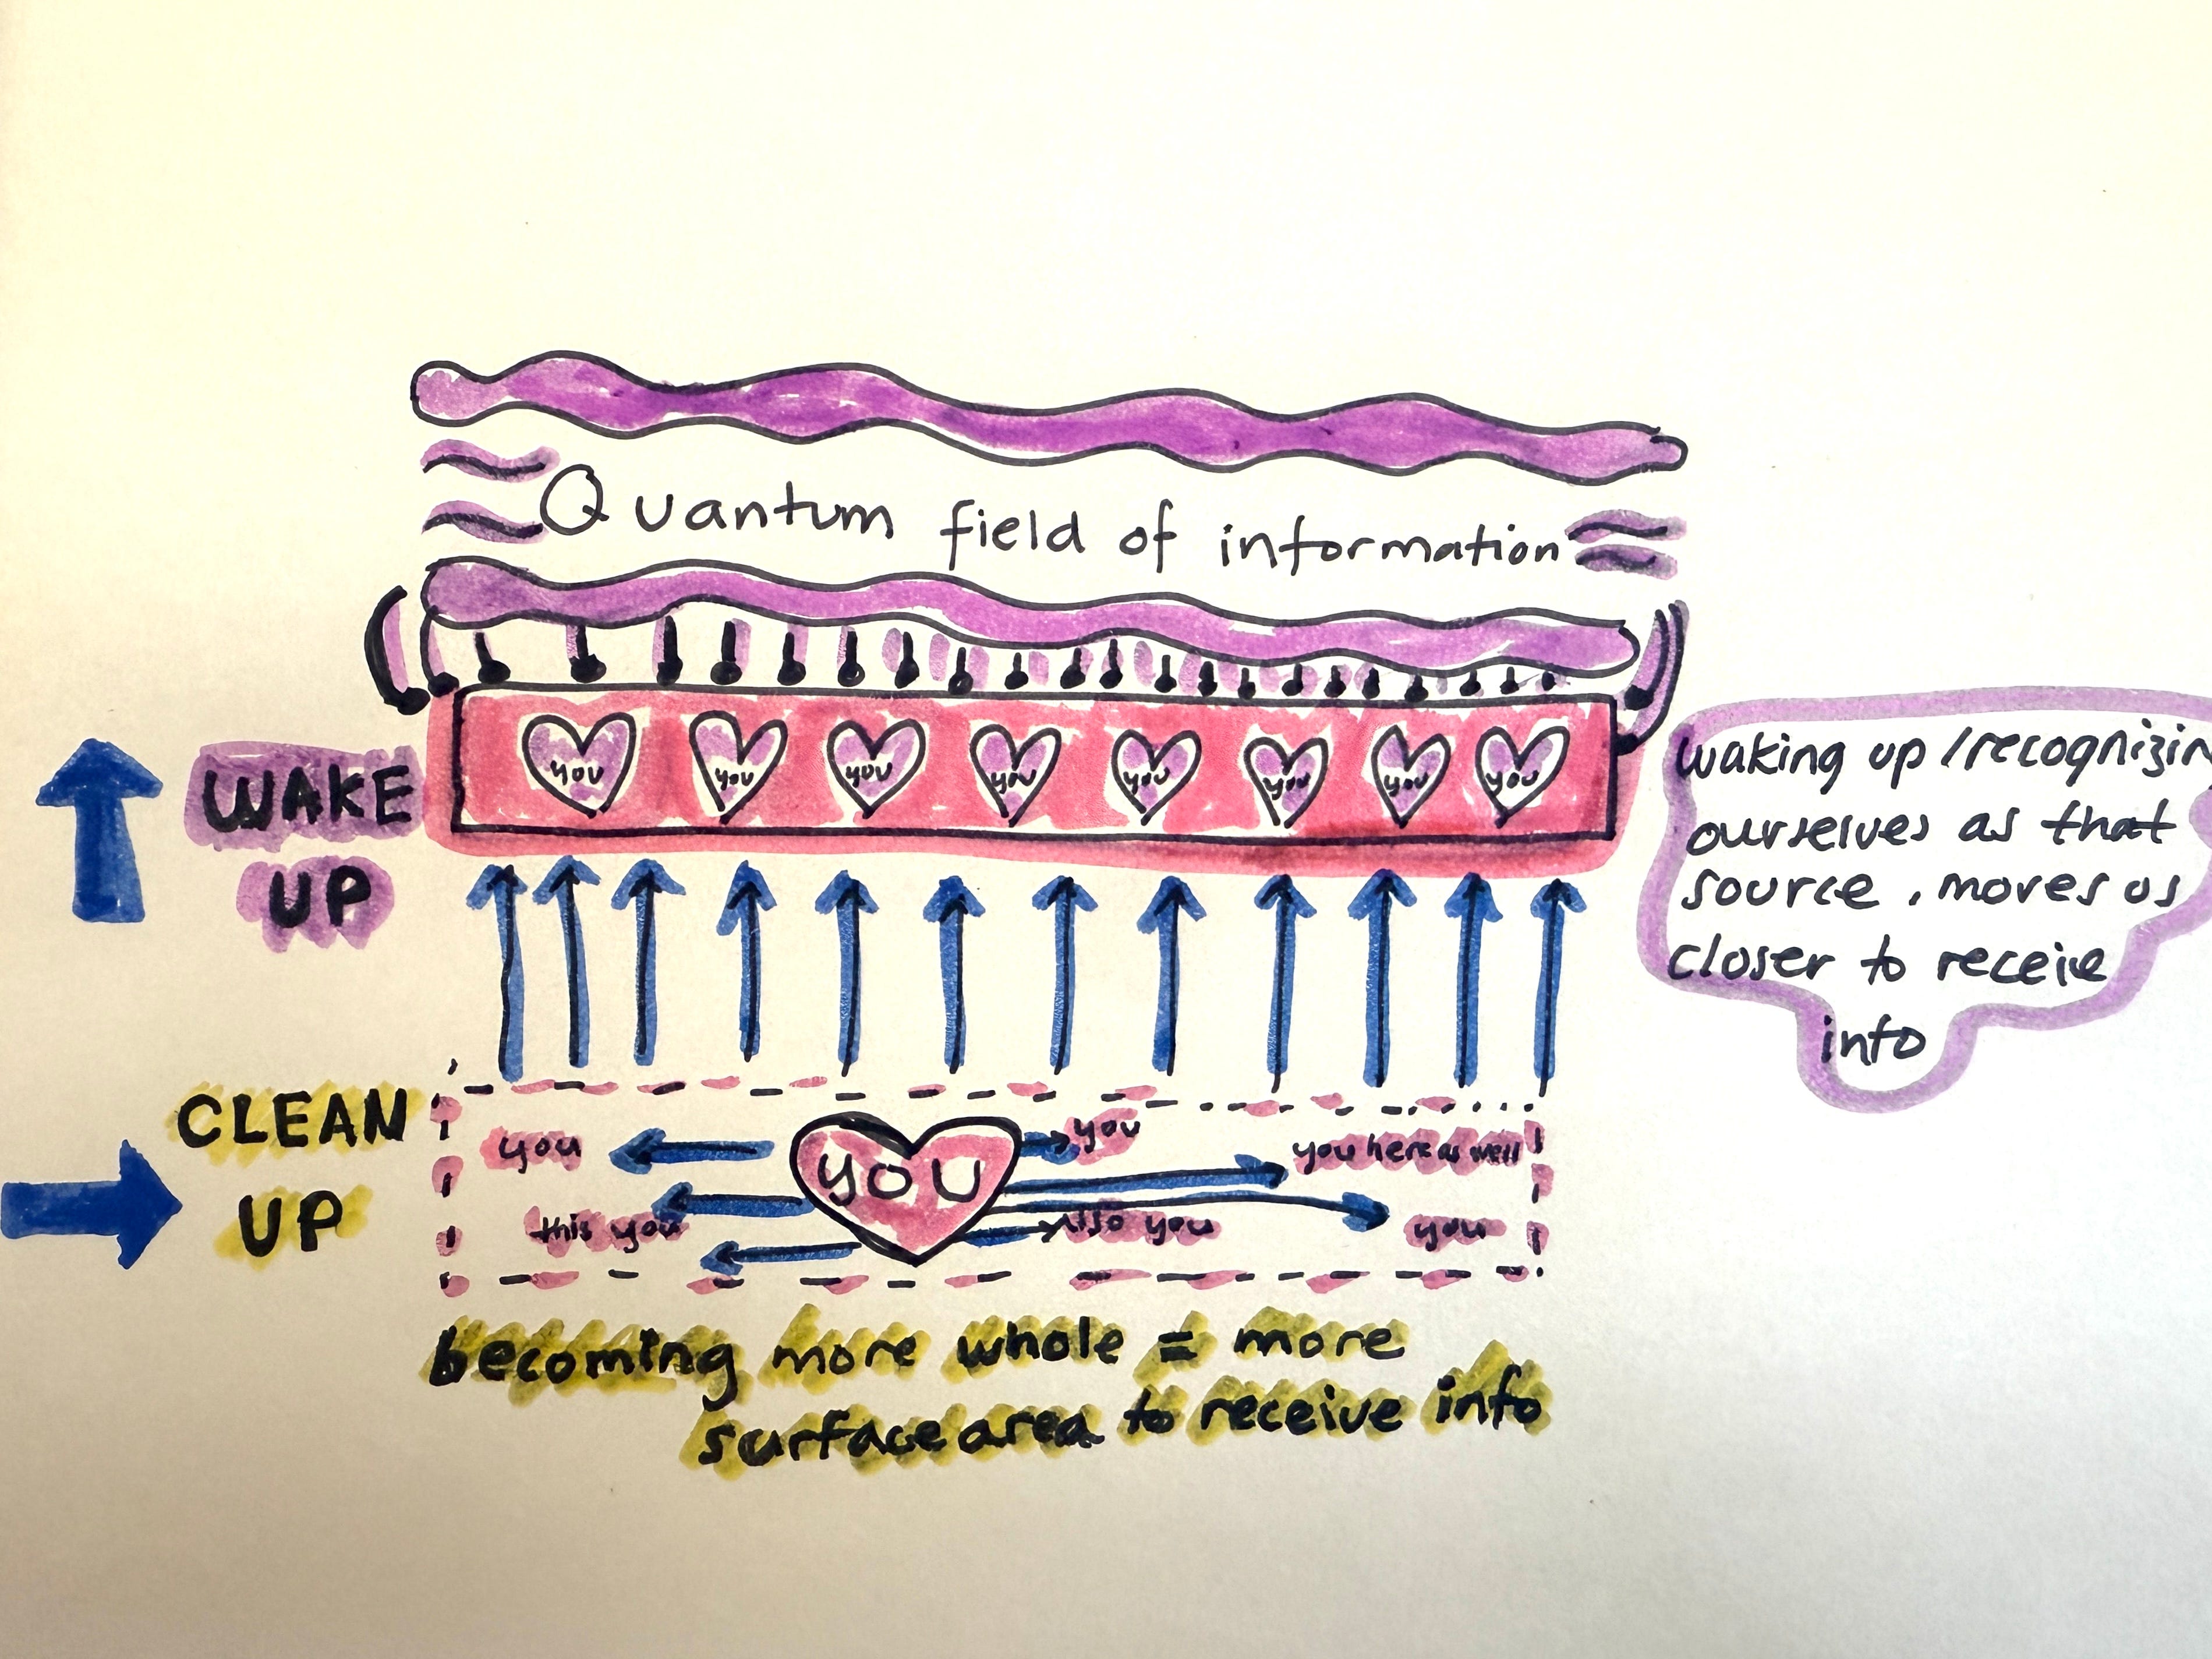 Quantum field of information
you you you you you you you you
WAKE
UP
waking up / recognizin
ourselves as that
source, moves us
closer to receive
info
CLEAN
UP
you
YOU
you
you here as well
this you
also you
you
becoming more whole = more
surface area to receive info